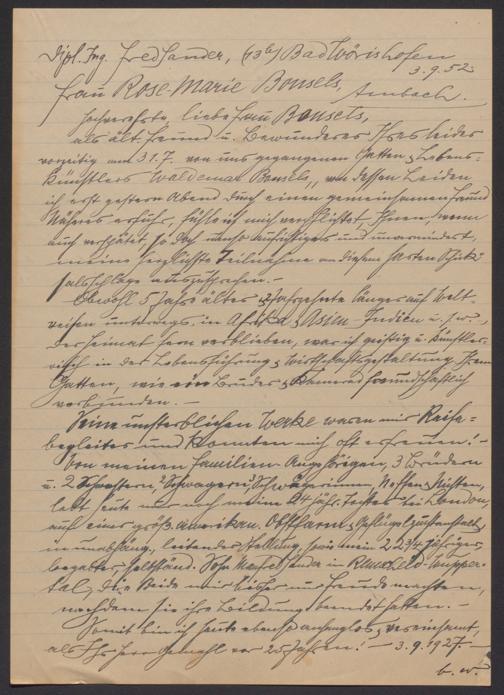 Dipl. Ing. Fred Sander, (13b) Bad Wörishofen
3.9.52
Frau Rose-Marie Bonsels, Ambach.
Hochverehrte, liebe Frau Bonsels,
als alt. Freund u. Bewunderer Ihres leider
vorzeitig am 31.7. von uns gegangenen Gatten & Lebens-
künstlers Waldemar Bonsels, von dessen Leiden
ich erst gestern Abend durch einen gemeinsamen Freund
Näheres erfuhr, fühle ich mich verpflichtet, Ihnen, wenn
auch verspätet, so doch umso aufrichtiger und unvermindert,
meine herzlichste Teilnahme an diesem harten Schick-
salsschlage auszusprechen. –
Obwohl 5 Jahre älter & Jahrzehnte länger auf Welt-
reisen unterwegs, in Afrika & Asien – Indien u.s.w.,
der Heimat fern verblieben, war ich geistig u. künstle-
risch in der Lebensführung & Wirtschaftsgestaltung Ihrem
Gatten, wie ein Bruder & Kamerad freundschaftlich
verbunden. –
Seine unsterblichen Werke waren mir Reise-
begleiter und konnten mich oft erfreuen! –
Von meinen Familien-Angehörigen, 3 Brüdern
u. 2 Schwestern, Schwägern, Schwägerinnen, Neffen & Nichten,
lebt heute nur noch meine 24 jähr. Tochter bei London,
auf einer groß. amerikan. Obstfarm & Geflügelzuchtanstalt,
in unabhäng., leitender Stellung, sowie mein 22 3/4 jähriger,
begabter, selbständ. Sohn Sander in Remscheid-Wupper-
tal, die Beide mir bisher nur Freude machten,
nachdem sie ihre Bildung beendet hatten. –
Somit bin ich heute ebenso anhanglos, vereinsamt,
als Ihr Herr Gemahl vor 25 Jahren! – 3.9.1927. –
b.w.